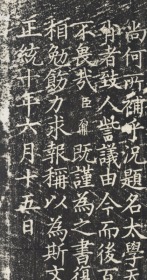 尚何所補乎況題名大學天
者致人訾議由今而後百
不畏哉臣既謹為之書復
相勉飭力求報稱以為斯文
正統十年六月十五日